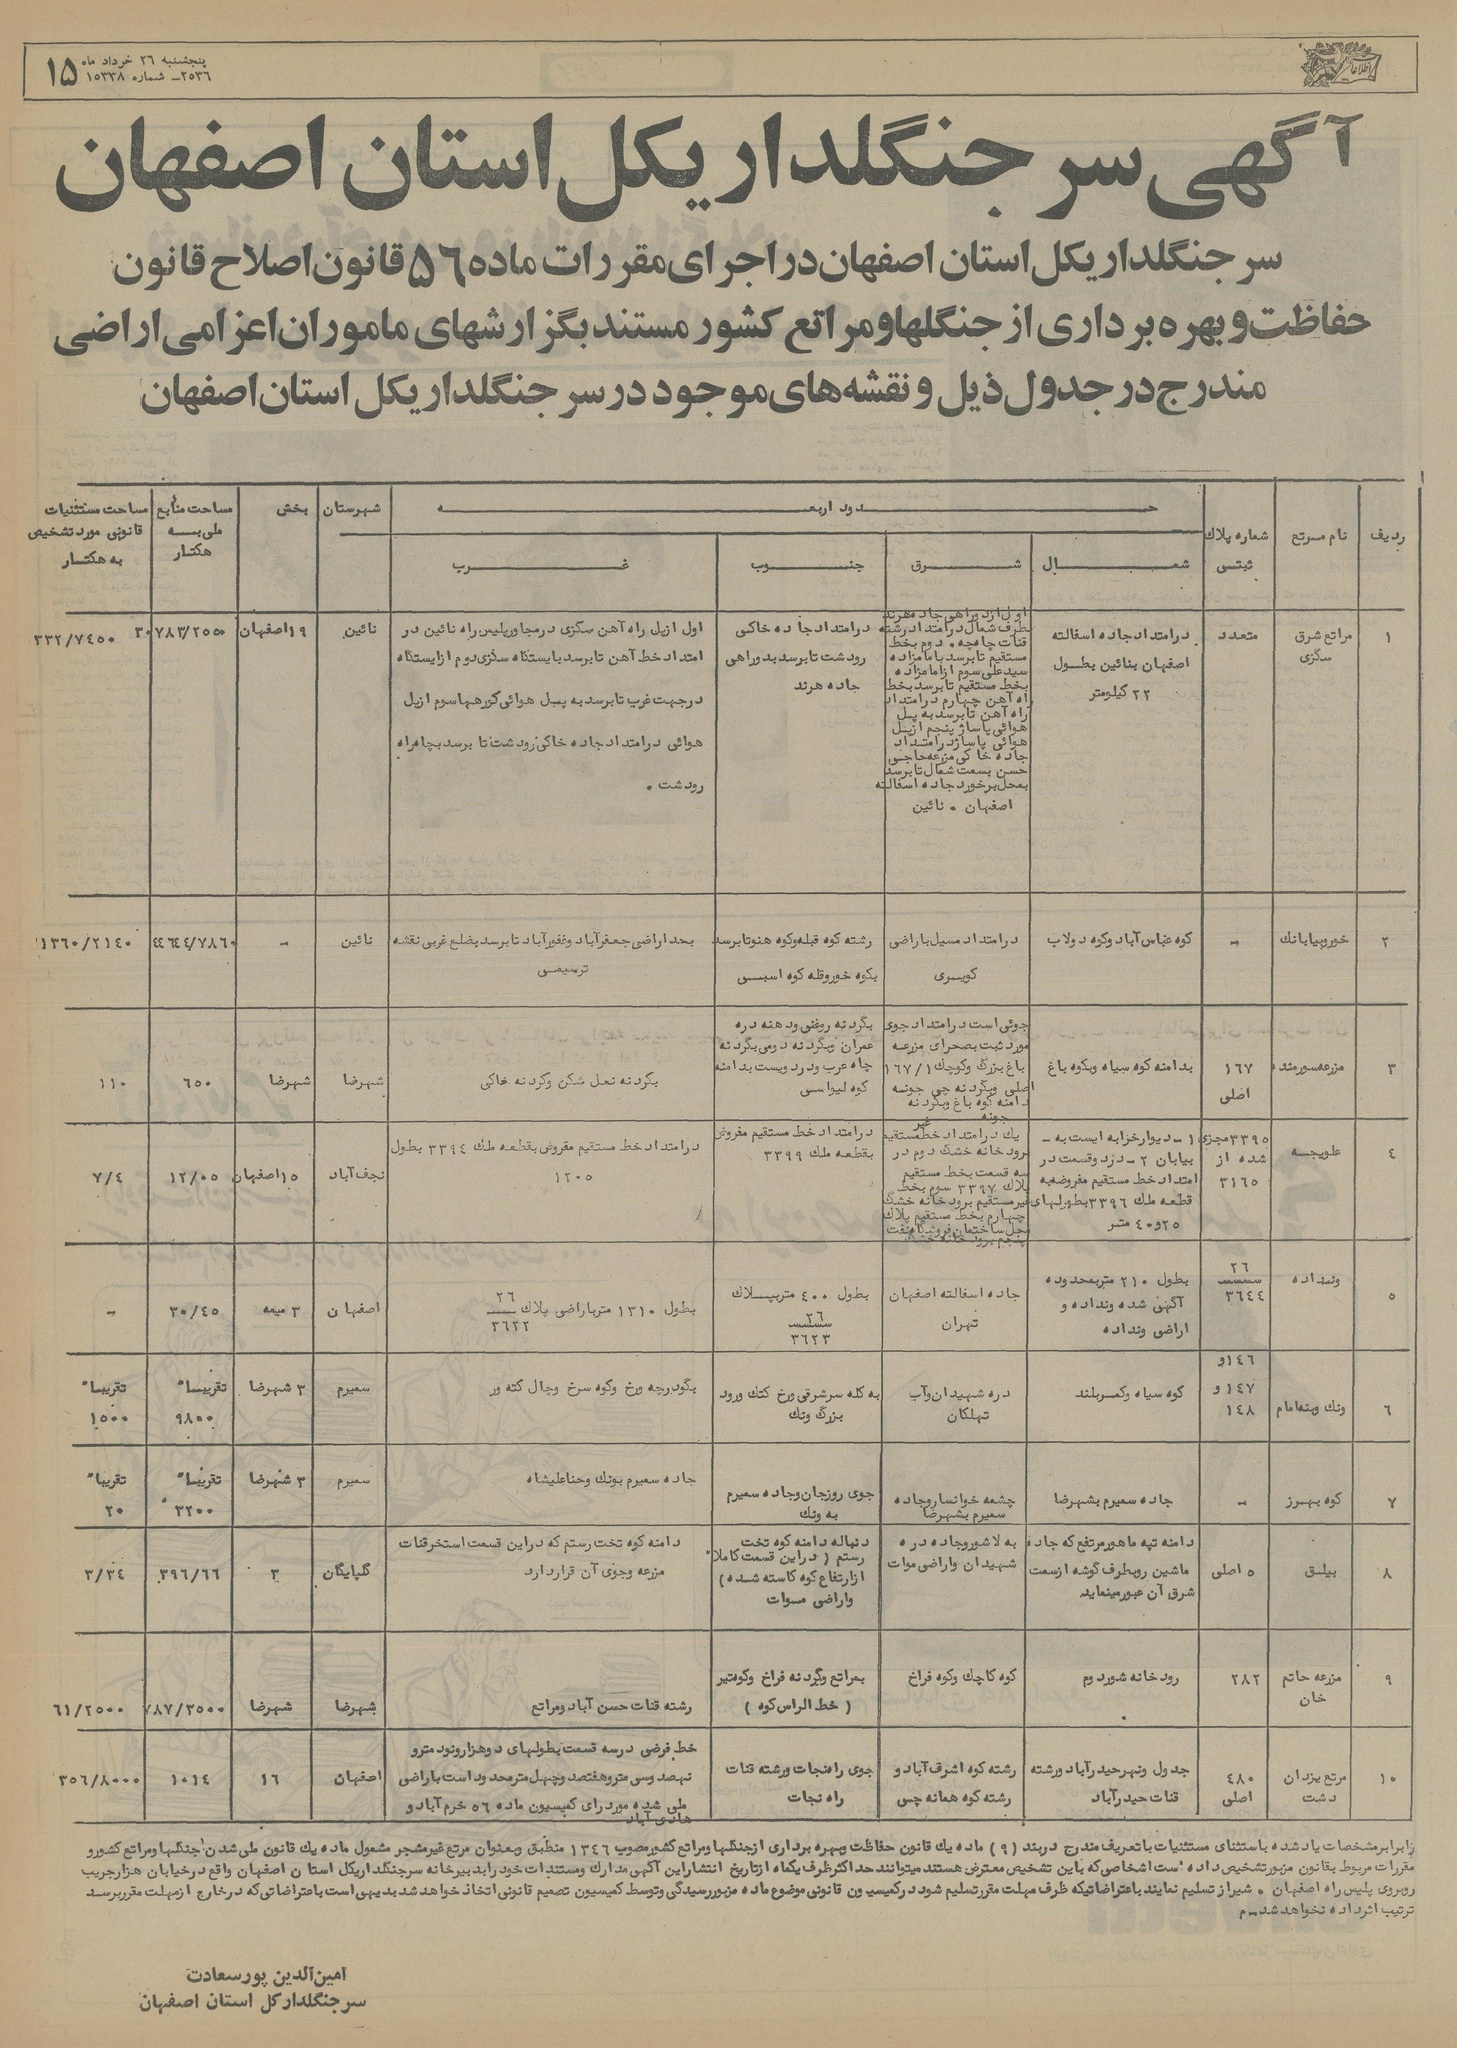 پنجشنبه ۲۶ خرداد ماه
۲۵۳۶ـ شماره ۱۵۳۳۸
۱۵
اطلاعات
آگهی سرجنگلداریکل استان اصفهان
سرجنگلداریکل استان اصفهان در اجرای مقررات ماده ۵۶ قانون اصلاح قانون
حفاظت و بهره برداری از جنگلها و مراتع کشور مستند بگزارشهای ماموران اعزامی اراضی
مندرج در جدول ذیل و نقشه‌های موجود در سرجنگلداریکل استان اصفهان
ردیف
نام مرتع
شماره پلاك
ثبتی
حدود اربعه
شمال
شرق
جنوب
غرب
شهرستان
بخش
مساحت منابع
ملی به
هکتار
مساحت مستثنیات
قانونی مورد تشخیص
به هکتار
۱
مراتع شرق
سگزی
متعدد
در امتداد جاده اسفالته
اصفهان بنائین بطول
۲۲ کیلومتر
اول از دوراهی جاده هرند
بطرف شمال در امتداد رشته
قنات چامچه . دوم بخط
مستقیم تا برسد بامامزاده
سید علی سوم از امامزاده
بخط مستقیم تا برسد بخط
راه آهن چهارم در امتداد
راه آهن تا برسد به پل
هوائی پاساژ پنجم از پل
هوائی پاساژ در امتداد
جاده خاکی مزرعه حاجی
حسن بسمت شمال تا برسد
بمحل برخورد جاده اسفالته
اصفهان . نائین
در امتداد جاده خاکی
رودشت تا برسد بدوراهی
جاده هرند
اول از پل راه آهن سگزی در مجاور پلیس راه نائین در
امتداد خط آهن تا برسد بایستگاه سگزی دوم از ایستگاه
در جهت غرب تا برسد به پل هوائی کورهها سوم از پل
هوائی در امتداد جاده خاکی رودشت تا برسد بچاهراه
رودشت .
نائین
۱۹ اصفهان
۳۰۷۸۳/۲۵۵۰
۳۳۲/۷۴۵۰
۲
خور و بیابانك
-
کوه عباس آباد و کوه دولاب
در امتداد مسیل باراضی
کویری
رشته کوه قبله و کوه هنو تا برسد
بکوه خور و قله کوه اسبی
بحد اراضی جعفرآباد و غفورآباد تا برسد بضلع غربی نقشه
ترسیمی
نائین
-
۴۴۶۴۴/۷۸۶۰
۱۳۶۰/۲۱۴۰
۳
مزرعه سورمنده
۱۶۷
اصلی
بدامنه کوه سیاه و بکوه باغ
جوئی است در امتداد جوی
مورد ثبت بصحرای مزرعه
باغ بزرگ و کوچك ۱۶۷/۱
اصلی و بگردنه چی جونه
دامنه کوه باغ و بگردنه
جونه
بگردنه روغنی و دهنه دره
عمران و بگردنه دومی بگردنه
چاه عرب و درد و بست بدامنه
کوه لیواسی
بگردنه نعل شکن و گردنه خاکی
شهرضا
شهرضا
۶۵۰
۱۱۰
۴
علویجه
۳۳۹۵ مجزی
شده از
۳۱۶۵
۱- دیوار خزابه ایست به -
بیابان ۲- در دو قسمت در
امتداد خط مستقیم مفروضه به
قطعه ملك ۳۳۹۶ بطولهای
۲۵ و ۴۰ متر
یك در امتداد خط غیر مستقیم
برودخانه خشك دوم در
سه قسمت بخط مستقیم
پلاك ۳۳۹۷ سوم بخط
غیرمستقیم برودخانه خشك
چهارم بخط مستقیم پلاك
محل ساختمان فروشگاه نفت
پنجم برودخانه خشك
در امتداد خط مستقیم مفروض
بقطعه ملك ۳۳۹۹
در امتداد خط مستقیم مفروض بقطعه ملك ۳۳۹۴ بطول
۱۲۰۵
نجف آباد
۱۵ اصفهان
۱۲/۰۵
۷/۴
۵
ونداده
۲۶
۳۶۴۴
بطول ۲۱۰ متر بمحدوده
آگهی شده ونداده و
اراضی ونداده
جاده اسفالته اصفهان
تهران
بطول ۴۰۰ متر بپلاك
۲۶
۳۶۲۳
بطول ۱۳۱۰ متر باراضی پلاك ۲۶
۳۶۲۲
اصفهان
۳ میمه
۳۰/۴۵
-
۶
ونك و بنه امام
۱۴۶ و
۱۴۷ و
۱۴۸
کوه سیاه و کمربلند
دره شهیدان و آب
تهلکان
به کله سرشرقی ورخ کتك ورود
بزرگ ونك
بگودرچه ورخ و کوه سرخ و چال کته ور
سمیرم
۳ شهرضا
تقریبا"
۹۸۰۰
تقریبا"
۱۵۰۰
۷
کوه بهرز
-
جاده سمیرم بشهرضا
چشمه خوانسار و جاده
سمیرم بشهرضا
جوی روزجان و جاده سمیرم
به ونك
جاده سمیرم بونك و حنا علیشاه
سمیرم
۳ شهرضا
تقریبا"
۳۲۰۰
تقریبا"
۲۰
۸
بیلـق
۵ اصلی
دامنه تپه ماهور مرتفع که جاده
ماشین رو بطرف گوشه از سمت
شرق آن عبور مینماید
به لاشور و جاده دره
شهیدان و اراضی موات
دنباله دامنه کوه تخت
رستم ( در این قسمت کاملا"
از ارتفاع کوه کاسته شده )
و اراضی موات
دامنه کوه تخت رستم که در این قسمت استخر قنات
مزرعه و جوی آن قرار دارد
گلپایگان
۳
۳۹۶/۶۶
۳/۳۴
۹
مزرعه حاتم
خان
۲۸۲
رودخانه شور دوم
کوه کاچك و کوه فراخ
بمراتع و گردنه فراخ و کوه تیر
( خط الراس کوه )
رشته قنات حسن آباد و مراتع
شهرضا
شهرضا
۷۸۷/۳۵۰۰
۶۱/۲۵۰۰
۱۰
مرتع یزدان
دشت
۴۸۰
اصلی
جدول و نهر حیدرآباد و رشته
قنات حیدرآباد
رشته کوه اشرف آباد و
رشته کوه همانه چی
جوی راه نجات و رشته قنات
راه نجات
خط فرضی در سه قسمت بطولهای دو هزار و نود متر و
نهصد و سی متر و هفتصد و چهل متر محدود است باراضی
ملی شده مورد رای کمیسیون ماده ۵۶ خرم آباد و
هادی آباد
اصفهان
۱۶
۱۰۱۴
۳۵۶/۸۰۰۰
را برابر مشخصات یاد شده با استثنای مستثنیات با تعریف مندرج در بند (۹) ماده یك قانون حفاظت و بهره برداری از جنگلها و مراتع کشور مصوب ۱۳۴۶ منطبق و بعنوان مرتع غیر مشجر مشمول ماده یك قانون ملی شدن جنگلها و مراتع کشور و
مقررات مربوط بقانون مزبور تشخیص داده است اشخاصی که باین تشخیص معترض هستند میتوانند حداکثر ظرف یکماه از تاریخ انتشار این آگهی مدارك و مستندات خود را بدبیرخانه سرجنگلداریکل استان اصفهان واقع در خیابان هزار جریب
روبروی پلیس راه اصفهان . شیراز تسلیم نمایند باعتراضاتیکه ظرف مهلت مقرر تسلیم شود در کمیسیون قانونی موضوع ماده مزبور رسیدگی و توسط کمیسیون تصمیم قانونی اتخاذ خواهد شد بدیهی است باعتراضاتی که در خارج از مهلت مقرر برسد
ترتیب اثر داده نخواهد شد ـ م
امین‌الدین پورسعادت
سرجنگلدار کل استان اصفهان